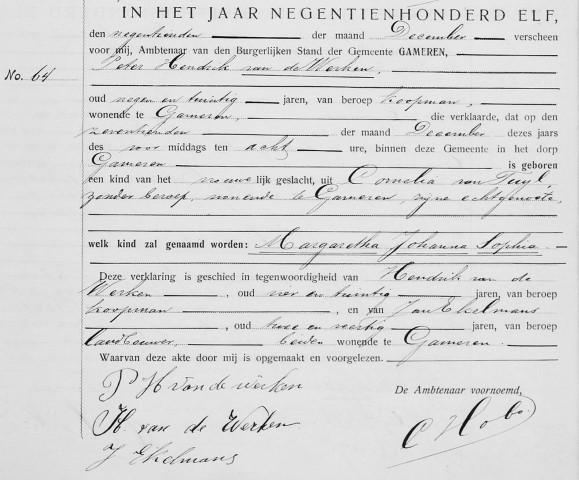 IN HET JAAR NEGENTIENHONDERD ELF,
den negentienden der maand December verscheen
voor mij, Ambtenaar van den Burgerlijken Stand der Gemeente GAMEREN,
No. 64 Peter Hendrik van de Werken,
oud negen en twintig jaren, van beroep koopman,
wonende te Gameren, die verklaarde, dat op den
zeventienden der maand December dezes jaars
des voor middags ten acht ure, binnen deze Gemeente in het dorp
Gameren is geboren
een kind van het vrouwelijk geslacht, uit Cornelia van Tuyl,
zonder beroep, wonende te Gameren, zijne echtgenoote,
welk kind zal genaamd worden: Margaretha Johanna Sophia
Deze verklaring is geschied in tegenwoordigheid van Hendrik van de
Werken, oud vier en twintig jaren, van beroep
koopman, en van Jan Ekelmans
, oud twee en veertig jaren, van beroep
landbouwer, beiden wonende te Gameren.
Waarvan deze akte door mij is opgemaakt en voorgelezen.
P H van de Werken
De Ambtenaar voornoemd,
H. van de Werken
C Hobo
J Ekelmans